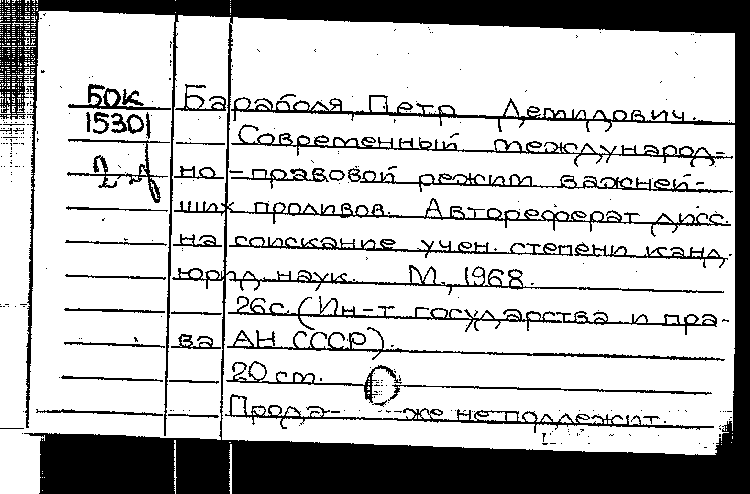 БОК
15301
Бараболя, Петр Демидович.
Современный международ-
но-правовой режим важней-
ших проливов. Автореферат дисс.
на соискание учен. степени канд.
юрид. наук. М., 1968.
26с. (Ин-т государства и пра-
ва АН СССР).
20 cm.
Прода- же не подлежит.